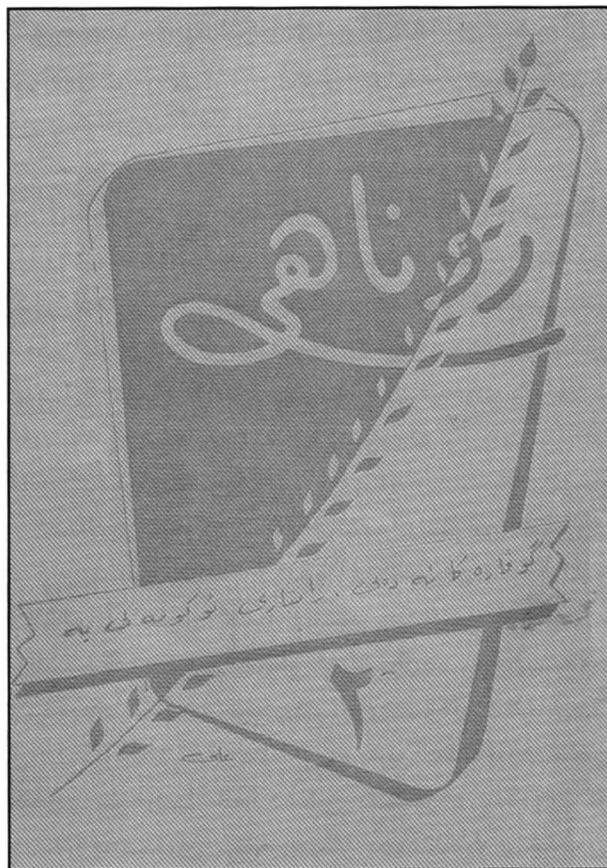 روناهى
گوفاره كا ئه ده‌بى . زانيارى . كومه لى يه
٢